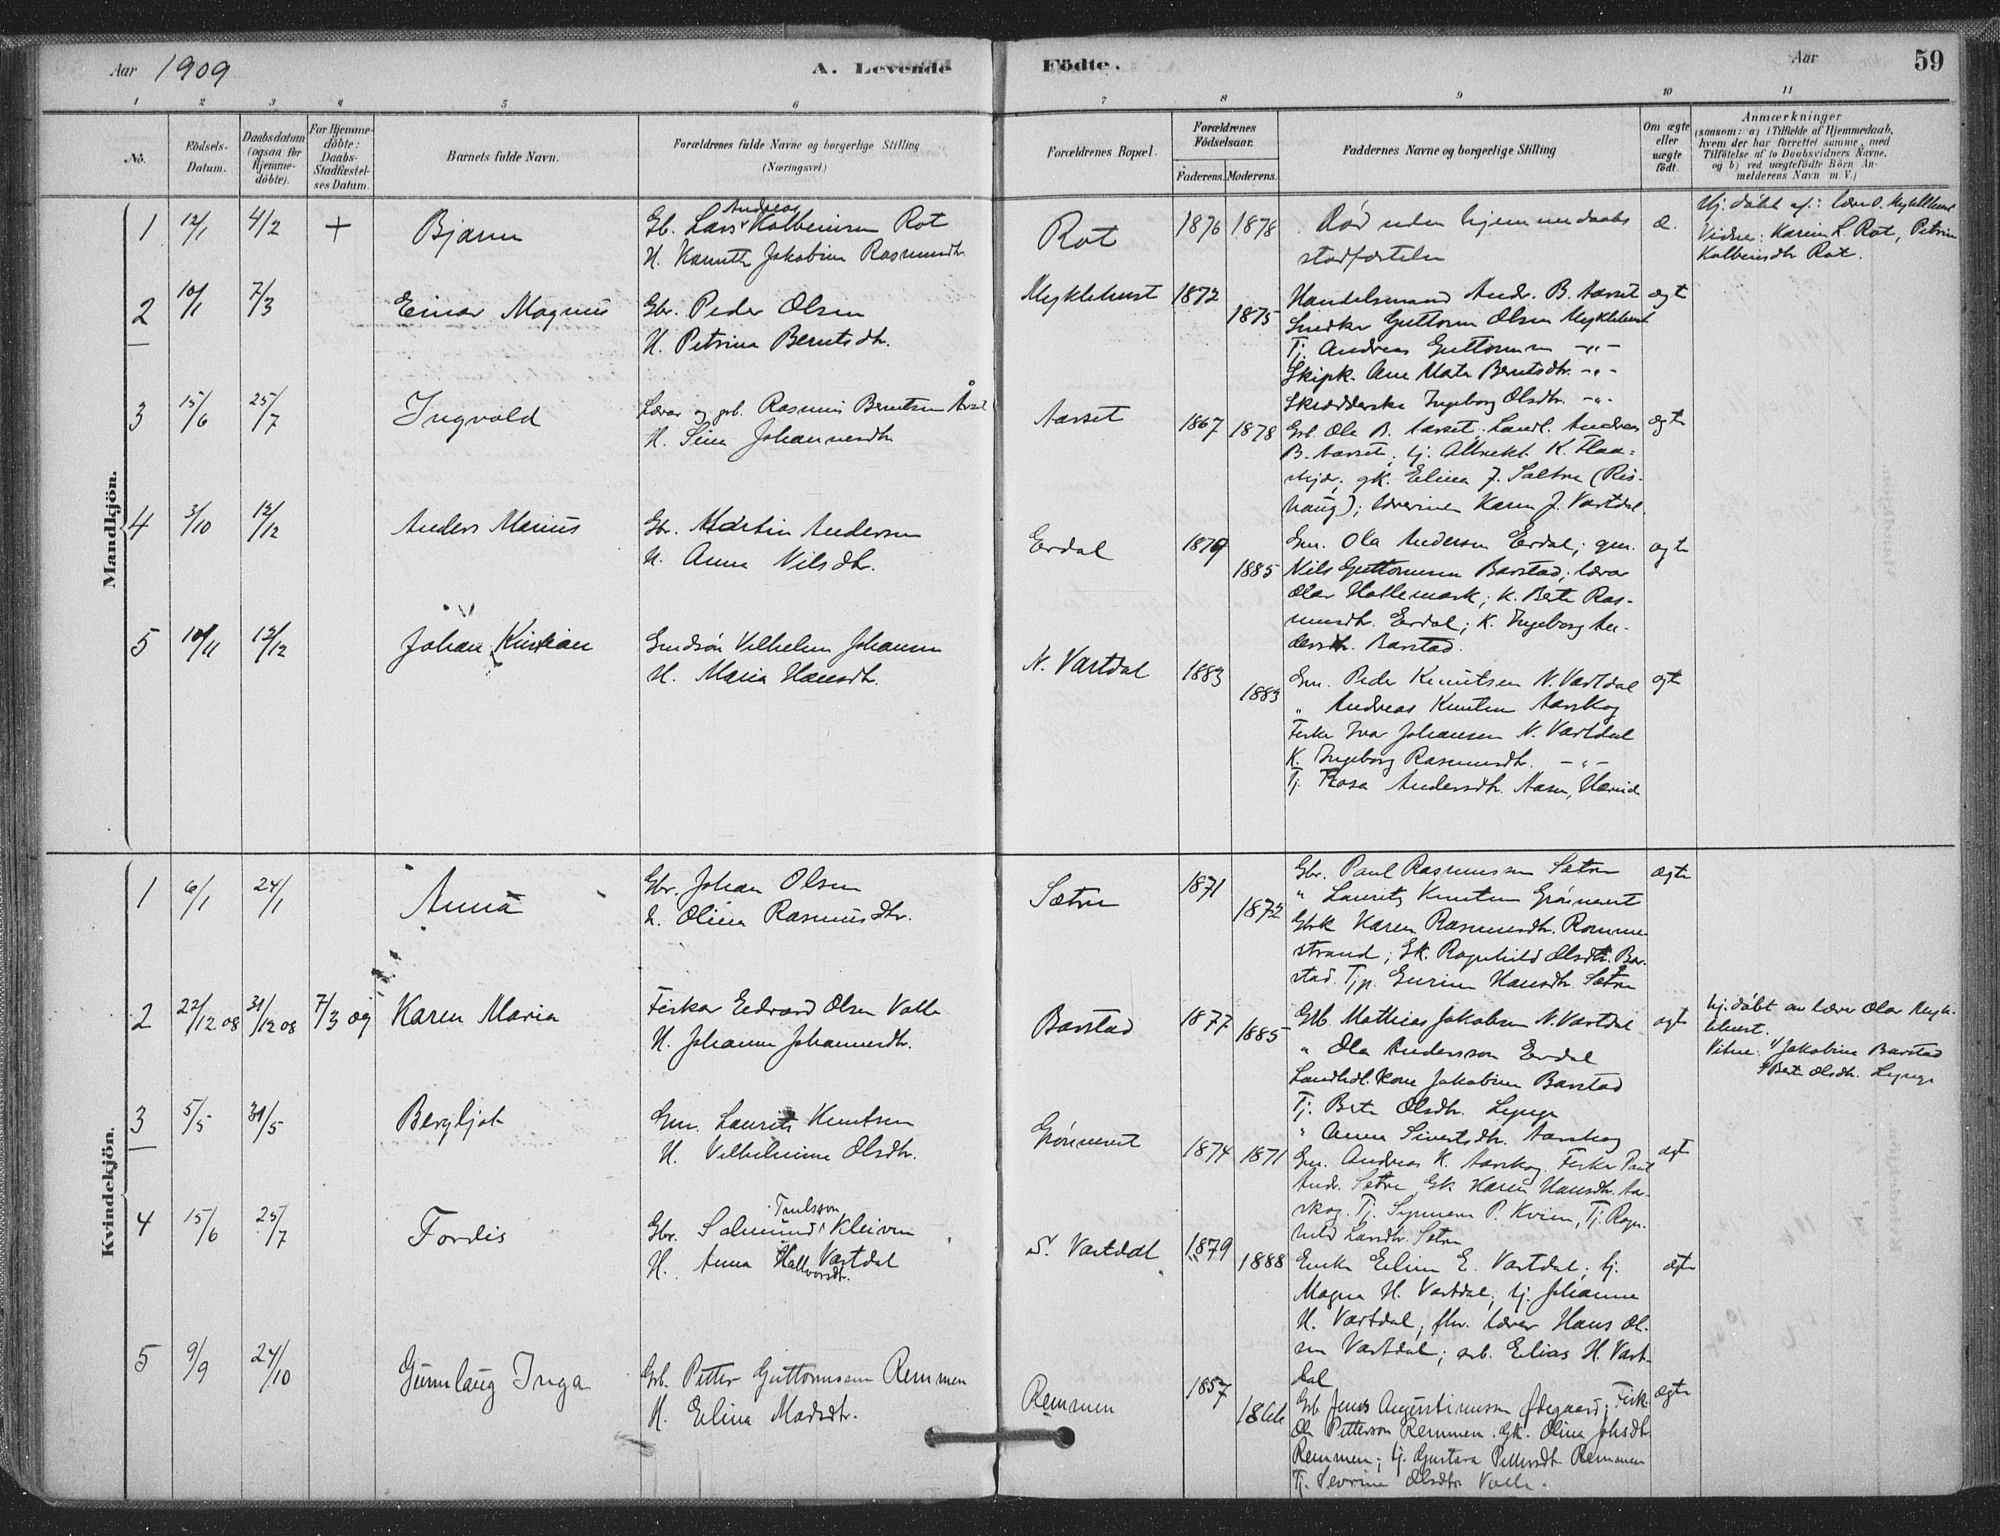 Aar 1909
A. Levende Födte.
Aar
59
1 2 3 4 5 6 7 8 9 10 11
No.
Födsels-Datum.
Daabsdatum (ogsaa for Hjemme-döbte).
For Hjemme-döbte: Daabs-Stadfæstel-ses Datum.
Barnets fulde Navn.
Forældrenes fulde Navne og borgerlige Stilling (Næringsvei)
Forældrenes Bopæl.
Forældrenes Födselsaar.
Faderens. Moderens.
Faddernes Navne og borgerlige Stilling
Om ægte eller uægte födt.
Anmærkninger
(saasom: a) i Tilfælde af Hjemmedaab,
hvem der har forrettet samme, med
Tilföielse af to Daabsvidners Navne,
og b) ved uægtefödte Börn An-
melderens Navn m. V.)
Mandkjön.
1 12/1 4/2 + Bjarne
Gb. Lars Andreas Kolbeinsen Rot
H. Jakobine Rasmusdtr.
Rot 1876 1878
Död uden hjemmedaabs
stadfæstelse
æ.
Hj. döbt af: lærer O. Myklebust
Vidne: Karen L. Rot, Petrine
Kolbeinsdtr Rot.
2 10/1 7/3 Einar Magnus
Gbr. Peder Olsen
H. Petrina Berntsdtr.
Myklebust 1872 1875
Handelsmand Andr. B. Aarset
Snedker Guttorm Olsen Myklebust
Tj. Andreas Guttormsen -"-
Skipk. Ane Mate Berntsdtr. -"-
Skrædderske Ingeborg Olsdtr. -"-
ægte
3 15/6 25/7 Ingvald
Lærar og grb. Rasmus Berntsen Årset
H. Sina Johannesdtr
Aarset 1867 1878
Grb. Ole B. Aarset. Landh. Andreas
B. Aarset, tj. Albrekt K. Flaa-
skjær; gk. Elina J. Saltre (Ris-
haug); lærerinne Karen J. Vartdal.
ægte
4 3/10 12/12 Anders Marius
Gbr. Martin Andersen
H. Anna Nilsdtr.
Erdal 1879 1885
Gm. Ola Andersen Erdal; gm.
Nils Guttormsen Barstad; lærar
Olav Hallemark; K. Berte Ras-
musdtr. Erdal; K. Ingeborg An-
dersdtr. Barstad.
ægte
5 10/11 12/12 Johan Kristian
Gardsøn Vilhelm Johansen
H. Maria Hansdtr.
N. Vartdal 1883 1883
Gm. Peder Knutsen N. Vartdal
" Andreas Knutsen Aarskog
Fisker Ivar Johansen N. Vartdal
K. Ingeborg Rasmusdtr. -"-
Tj. Rosa Andersdtr. Aasen, Hareid
ægte
Kvindekjön.
1 6/1 24/1 Anna
Gbr. Johan Olsen
H. Olina Rasmusdtr.
Sætre 1871 1872
Gbr. Paul Rasmussen Sætre
" Laurits Knutsen Grönnevet
Gbk Karen Rasmusdtr. Romme-
strand; Gk. Ragnhild Olsdtr. Bar-
stad. Tjp. Gurine Hansdtr. Sætre
ægte
2 22/12 08 31/12 08 7/3 09 Karen Maria
Fiskar Edvard Olsen Valle
H. Johanne Johannesdtr.
Barstad 1877 1885
Gb. Mathias Jakobsen N. Vartdal
" Ola Andersson Erdal
Landhdl. kone Jakobine Barstad
Tj. Berte Olsdtr. Lynge
" Anna Sivertsdtr. Aarskog
ægte
hj. döbt av lærer Olav Mykle-
bust.
Vitne: Jakobine Barstad
Berte Olsdtr. Lynge
3 5/5 31/5 Bergljot
Gm. Laurits Knutsen
H. Vilhelmine Olsdtr.
Grönnevet 1874 1871
Gm. Andreas K. Aarskog. Fisker Paul
Andr. Sætre. Gk Karen Hansdtr. Aar-
skog. Tj. P. Kvien, Tj. Ragn-
hild Larsdtr. Sætre
ægt
4 15/6 25/7 Tordis
Gbr. Salmund Trulsson Kleiven
H. Anna Hallvorsdtr. Vartdal
S. Vartdal 1879 1888
Enke Eline E. Vartdal; tj.
Magna H. Vartdal; tj. Johanna
H. Vartdal; fhv. lærer Hans Ol-
sen Vartdal; arb. Elias H. Vart-
dal
ægte
5 9/9 24/10 Gunnlaug Inga
Grb. Petter Guttormsson Remmen
H. Elina Madsdtr.
Remmen 1857 1866
Grb Jens Augustinussen Ødegaard; Fisk.
Ola Petterson Remmen. Gk. Olina Johsdtr
Remmen; tj. Gustava Pettersdtr Remmen
Tj. Severine Olsdtr Valle.
ægte